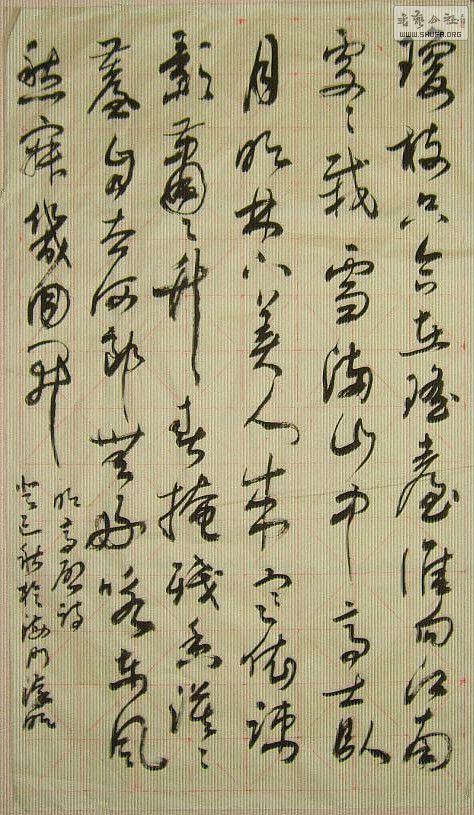 瓊枝只合在瑤臺誰向江南
處々栽雪滿山中高士臥
月明林下美人來寒依疎
影蕭々竹春掩殘香漠々
苔自去何郎無好咏東風
愁寂幾回開
明高啟詩
癸巳秋於海門
书艺公社
WWW.SHUFA.ORG